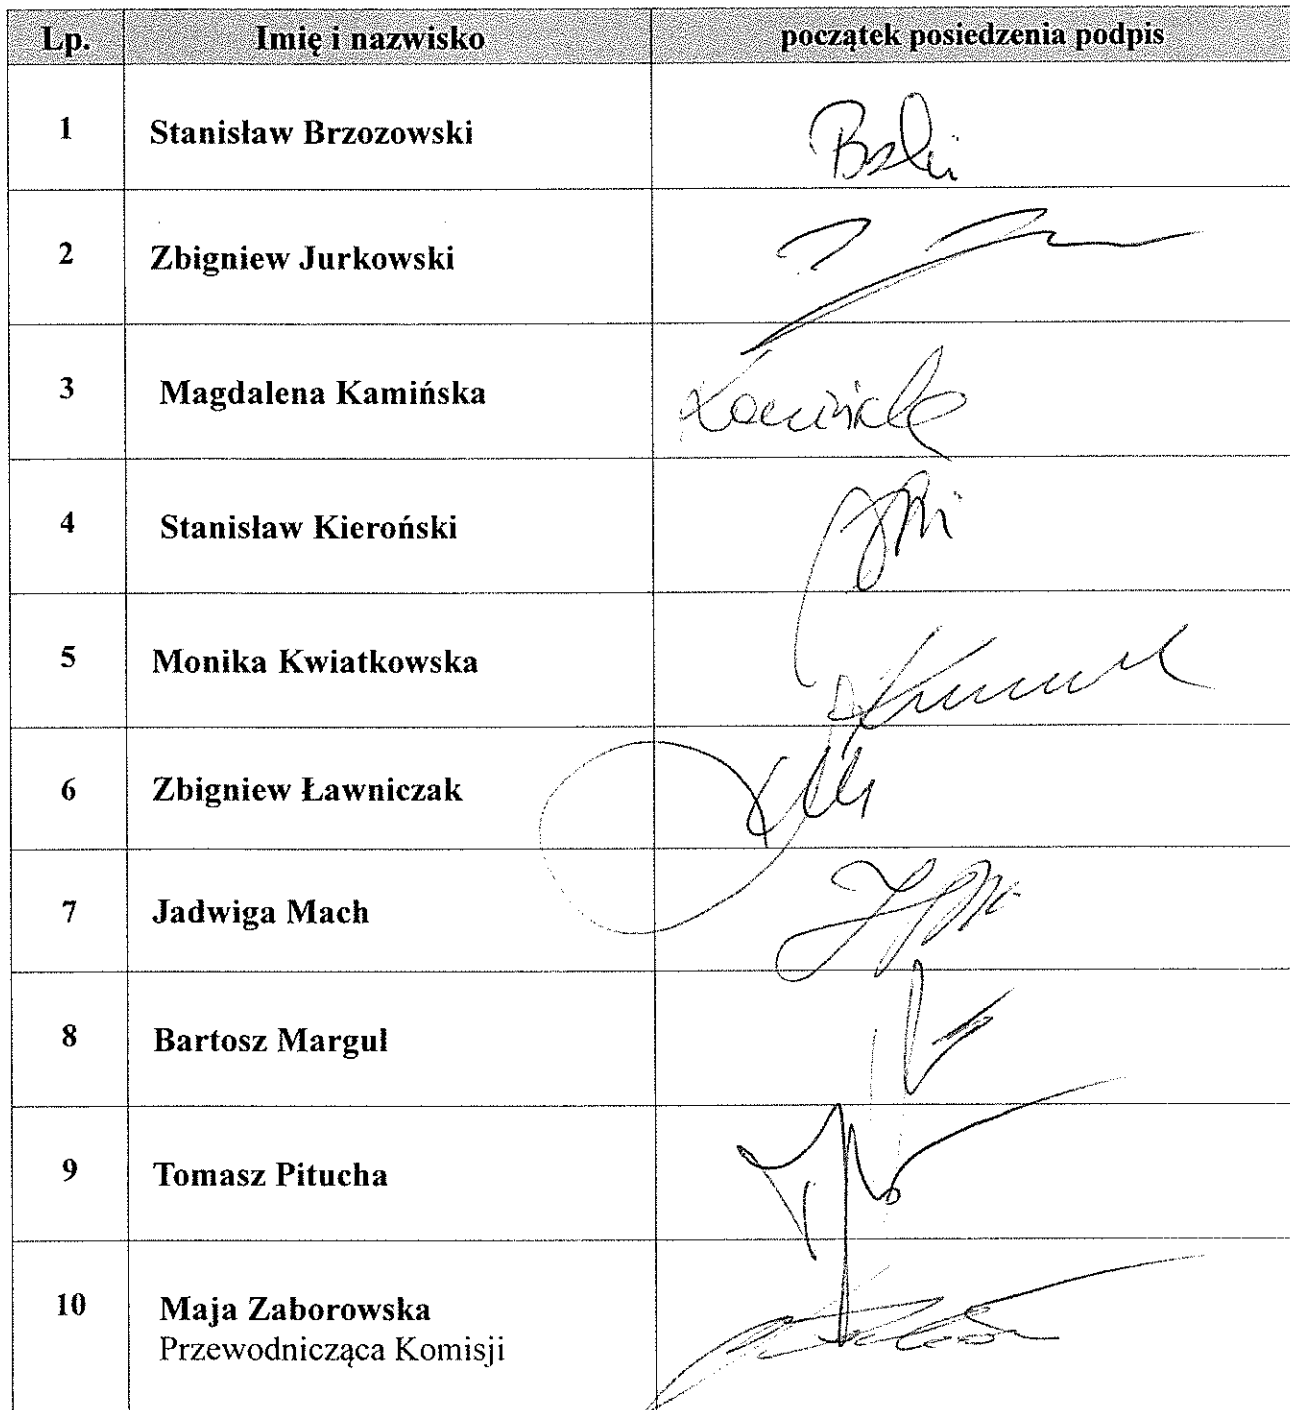 Lp. Imię i nazwisko początek posiedzenia podpis
1 Stanisław Brzozowski
2 Zbigniew Jurkowski
3 Magdalena Kamińska
4 Stanisław Kieroński
5 Monika Kwiatkowska
6 Zbigniew Ławniczak
7 Jadwiga Mach
8 Bartosz Margul
9 Tomasz Pitucha
10 Maja Zaborowska
Przewodnicząca Komisji